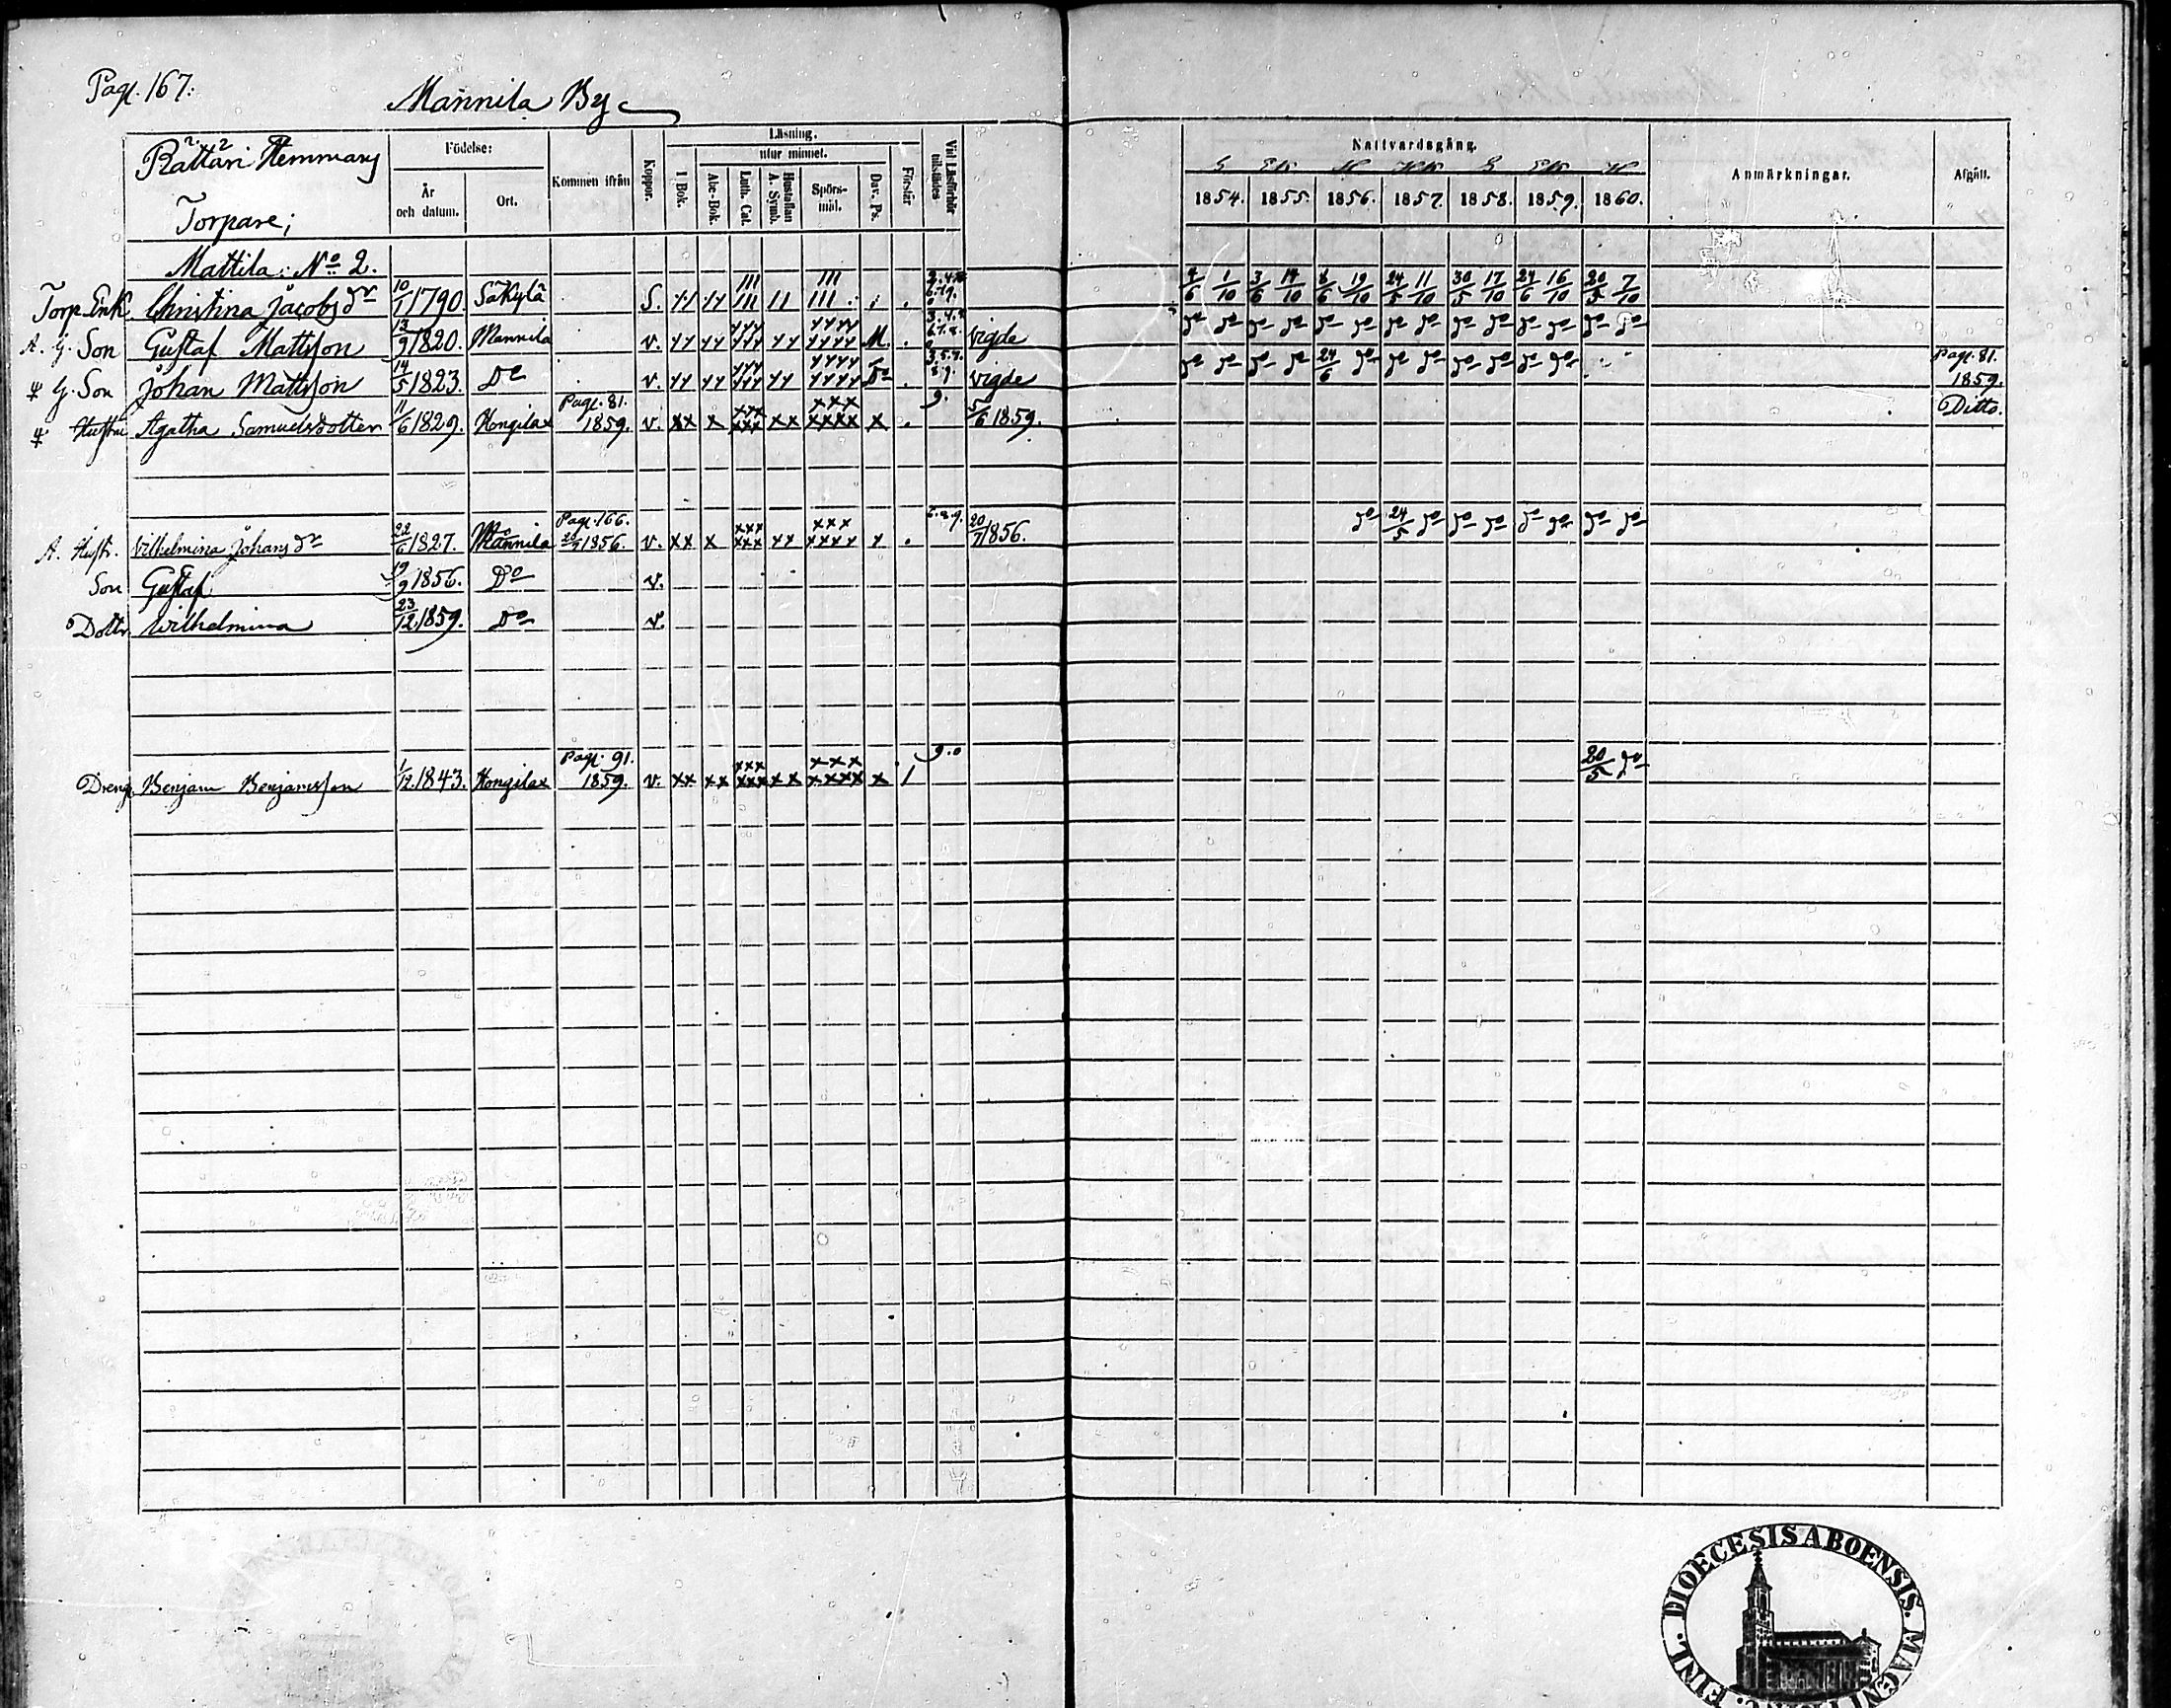 Pag. 167.
Mannila By
Rättäri Hemmans
Torpare;
Födelse:
År och datum.
Ort.
Kommen ifrån
Koppor.
Läsning.
utur minnet.
I Bok.
Abc-Bok.
Luth. Cat.
Hustaflan A. Symb.
Spörsmål.
Dav. Ps.
Förstår
Vid Läsförhör tillstädes
Nattvardsgång.
1854. 1855. 1856. 1857. 1858. 1859. 1860.
Anmärkningar.
Afgått.
Mattila: No 2.
Torp. Enk. Christina Jacobs dr 10/1 1790. Säkylä S. 1/10 3/6 14/10 19/10 24/5 11/10 30/5 17/10 16/10 20/5 7/10
A. G. Son Gustaf Mattsson 13/9 1820. Mannila v. M. vigde do do do do do do do do do do do do do do
G. Son Johan Mattsson 14/5 1823. Do v. Do vigde do do do do 24/6 do do do do do do do Pag. 81. 1859.
Hustru Agatha Samuelsdotter 11/6 1829. Hongilax Pag. 81. 1859. v. xx x xxx xxx xx xxx xxxx x 9. 5/6 1859. Ditto.
A. Hustr. Vilhelmina Johans dr 1827. Mannila Pag. 166. 1856. v. xx x xxx xxx xx xxx xxxx x 20/7 1856. do 24/5 do do do do do do do
Son Gustaf 19/9 1856. Do v.
Dottr. Wilhelmina 23/12 1859. Do v.
Dreng. Benjam Benjamsson 1/12 1843. Hongilax Pag. 91. 1859. v. xx xx xxx xxx xx xxx xxxx x / 9.0 20/5 do
DIOECESIS ABOENSIS. MAGNI FINL.